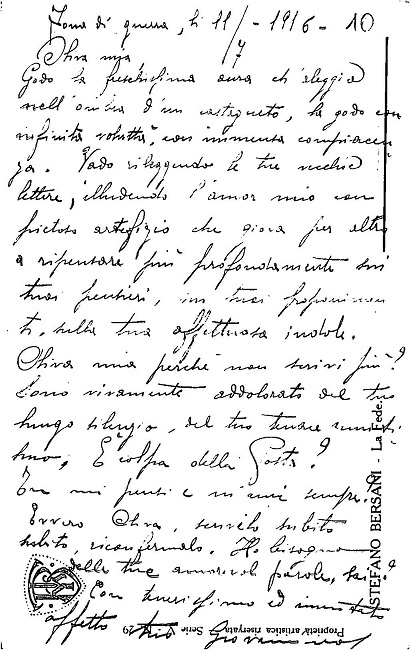 Zona di guerra, li 11/7 - 1916 - 10
Oliva mia
Godo la freschissima aura ch'aleggia
nell'ombra d'un castagneto, la godo con
infinita voluttà, con immensa compiacen
za. Vado rileggendo le tue vecchie
lettere, illudendo l'amor mio con
pietoso artifizio che giova per altro
a ripensare più profondamente sui
tuoi pensieri, sui tuoi proponimen
ti, sulla tua affettuosa indole.
Oliva mia perché non scrivi più?
Sono vivamente addolorato del tuo
lungo silenzio, del tuo tenace
È colpa della Posta?
Tu mi pensi e m'ami sempre?
Ebbene Oliva, scrivilo subito
subito, riconfermalo. Ho bisogno
delle tue amorevoli parole, sai?
Con tenerissimo ed immutato
affetto tuo Giovannino
STEFANO BERSANI - La Fede.
Proprietà artistica riservata - Serie 29